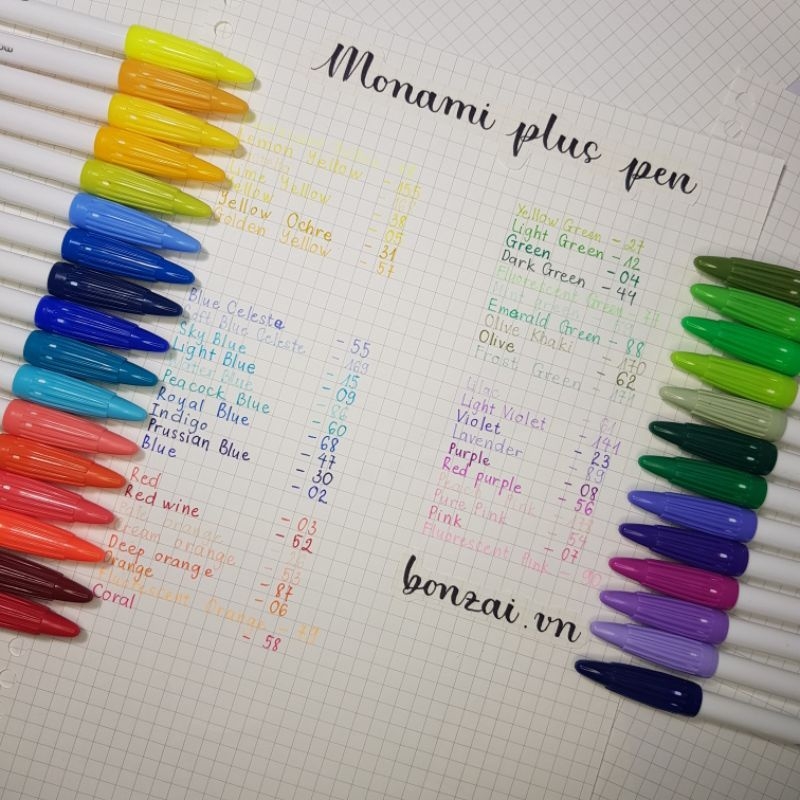 Monami plus pen
Lemon Yellow - 155
Lime Yellow - 38
Yellow - 05
Yellow Ochre - 31
Golden Yellow - 57
Blue Celeste - 55
Soft Blue Celeste - 169
Sky Blue - 15
Light Blue - 09
Blue - 86
Peacock Blue - 60
Royal Blue - 68
Indigo - 47
Prussian Blue - 30
Blue - 02
Red - 03
Red wine - 52
orange
Cream orange - 53
Deep orange - 87
Orange - 06
Fluorescent Orange - 79
Coral - 58
Yellow Green - 27
Light Green - 12
Green - 04
Dark Green - 44
Fluorescent Green
Emerald Green - 88
Olive Khaki - 170
Olive - 62
Frost Green - 171
Lilac
Light Violet - 141
Violet - 23
Lavender - 89
Purple - 08
Red purple - 56
Peach Pink
Pure Pink - 54
Pink - 07
Fluorescent Pink - 90
bonzai.vn